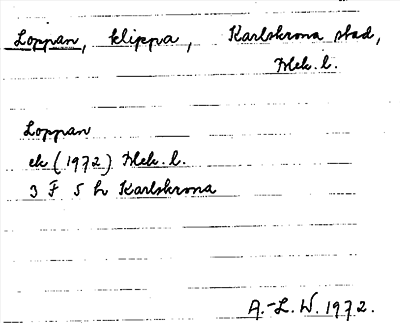 Loppan, klippa, Karlskrona stad,
Blek. l.
Loppan
ek (1972) Blek. l.
3 F 5 h Karlskrona
A.-L. W. 1972.